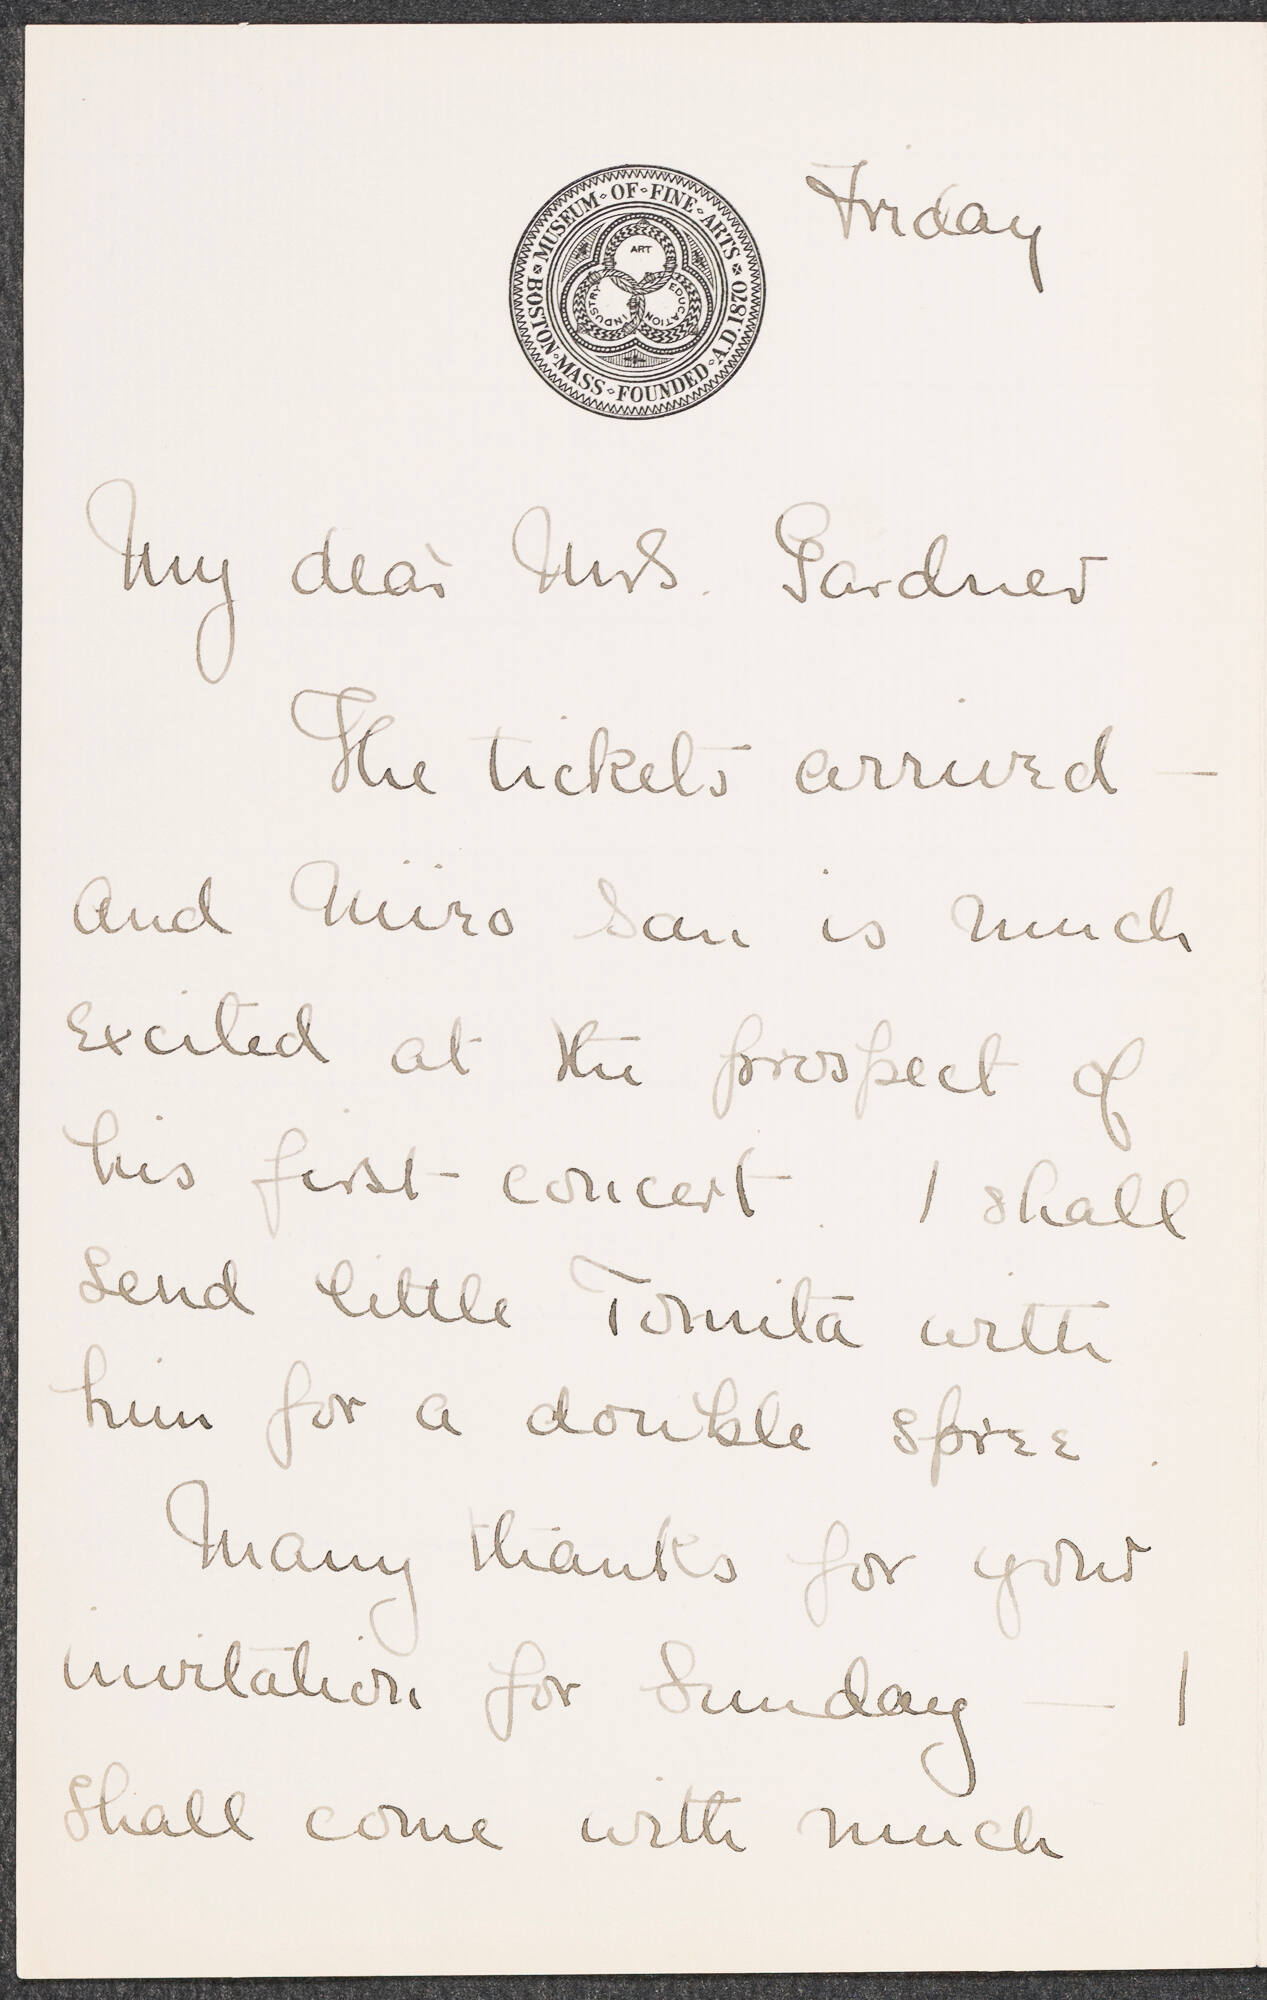 Friday
BOSTON · MASS · FOUNDED · A.D. 1870 × MUSEUM · OF · FINE · ARTS ×
ART
INDUSTRY
EDUCATION
My dear Mrs. Gardner
The tickets arrived —
and Niiro San is much
excited at the prospect of
his first concert. I shall
send little Tomita with
him for a double spree.
Many thanks for your
invitation for Sunday — I
shall come with much